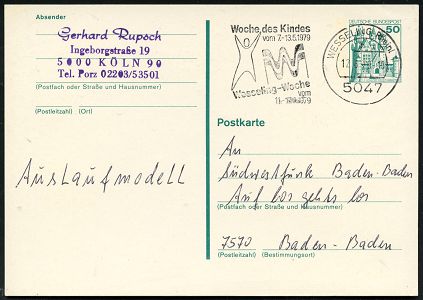 Absender
Gerhard Rupsch
Ingeborgstraße 19
5000 KÖLN 90
Tel. Porz 02203/53501
(Postfach oder Straße und Hausnummer)
(Postleitzahl) (Ort)
Auslaufmodell
Woche des Kindes
vom 7.-13.5.1979
Wesseling-Woche
vom
WESSELING
5047
DEUTSCHE BUNDESPOST
50
Postkarte
An
Südwestfunk Baden-Baden
Auf los gehts los
(Postfach oder Straße und Hausnummer)
7570 Baden-Baden
(Postleitzahl) (Bestimmungsort)